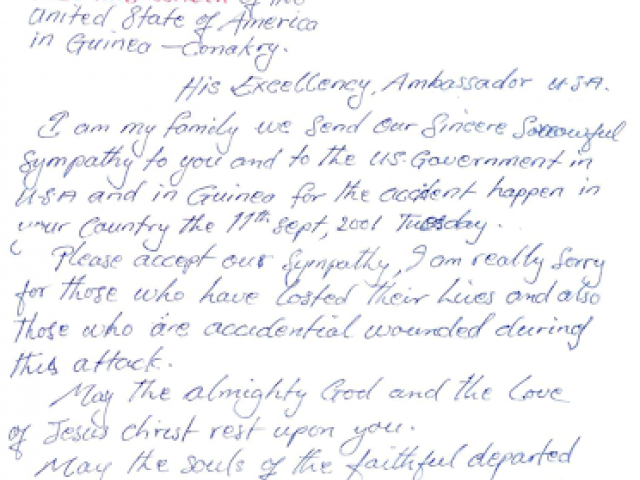 of the
United State of America
in Guinea - Conakry.
His Excellency, Ambassador U.S.A.
I am my family we send our sincere sorrowful
sympathy to you and to the US-Government in
U-S-A and in Guinea for the accident happen in
your country the 11th Sept, 2001 Tuesday.
Please accept our sympathy, I am really sorry
for those who have losted their lives and also
those who are accidential wounded during
this attack.
May the almighty God and the Love
of Jesus christ rest upon you.
May the souls of the faithful departed